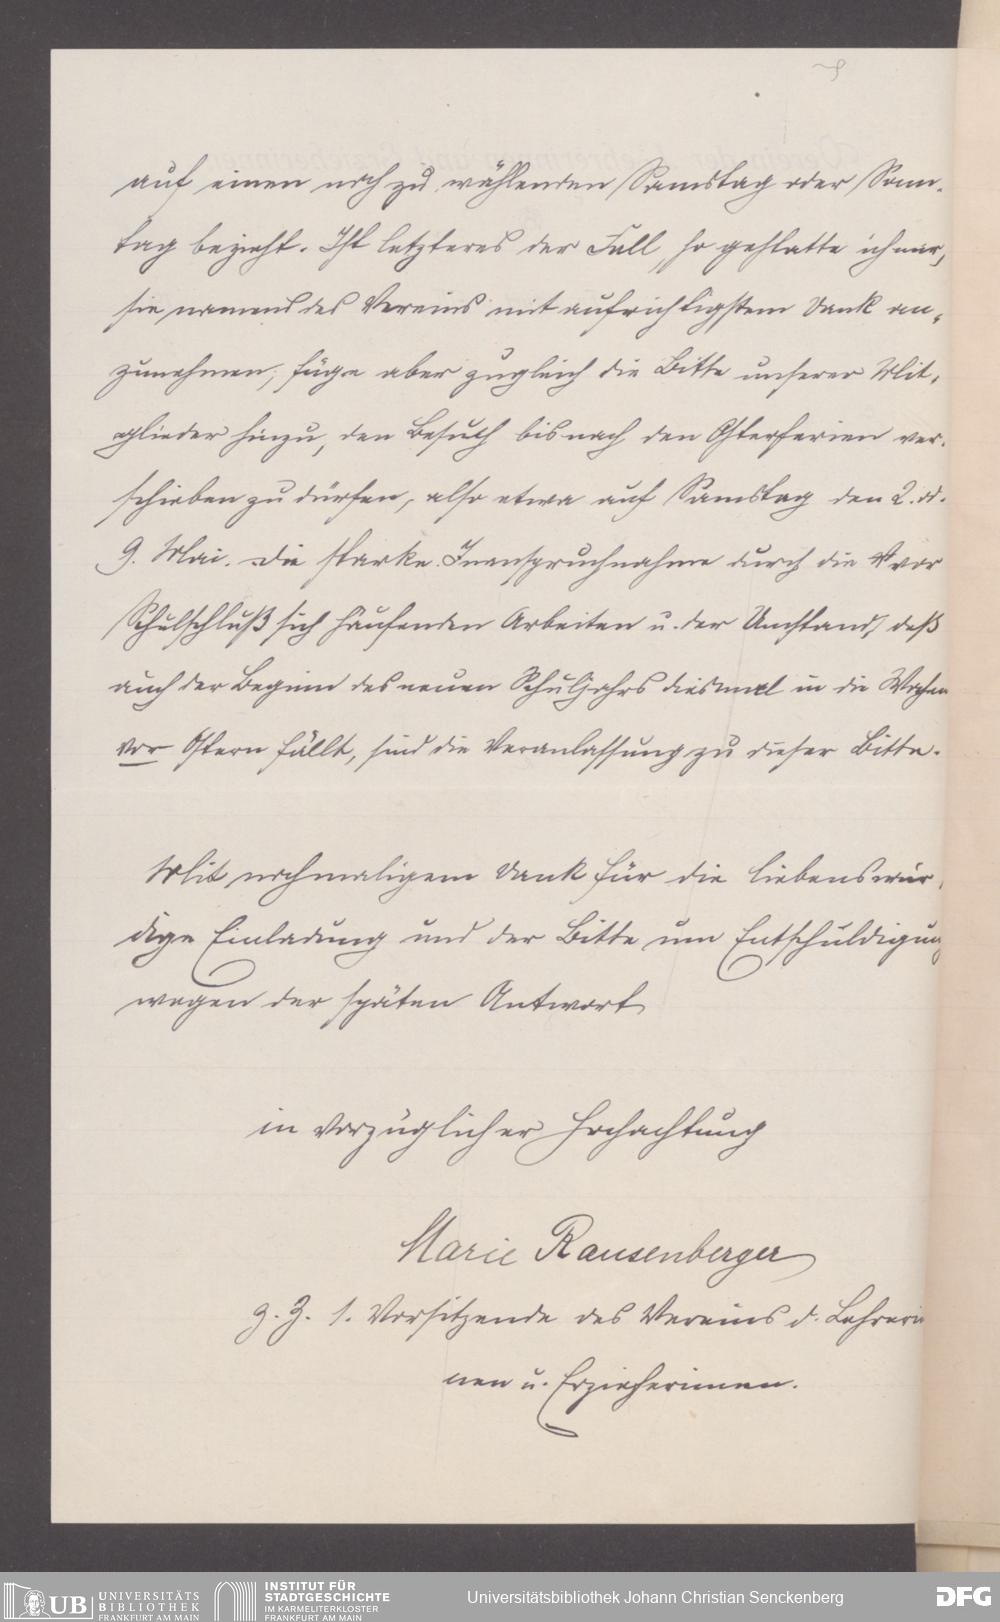 auf einen noch zu wählenden Samstag oder Sonn-
tag bezieht. Ist letzteres der Fall, so gestatte ich mir,
sie namens des Vereins mit aufrichtigstem Dank an-
zunehmen, füge aber zugleich die Bitte unserer Mit-
glieder hinzu, den Besuch bis nach den Osterferien ver-
schieben zu dürfen, also etwa auf Samstag den 2. od.
9. Mai. Die starke Inanspruchnahme durch die vor
Schulschluß sich häufenden Arbeiten u. der Umstand, daß
auch der Beginn des neuen Schuljahrs diesmal in die Wochen
vor Ostern fällt, sind die Veranlassung zu dieser Bitte.
Mit nochmaligem Dank für die liebenswür-
dige Einladung und der Bitte um Entschuldigung
wegen der späten Antwort
in vorzüglicher Hochachtung
Marie Rausenberger
z. Z. 1. Vorsitzende des Vereins d. Lehrerin
nen u. Erzieherinnen.
UB UNIVERSITÄTS
BIBLIOTHEK
FRANKFURT AM MAIN
INSTITUT FÜR
STADTGESCHICHTE
IM KARMELITERKLOSTER
FRANKFURT AM MAIN
Universitätsbibliothek Johann Christian Senckenberg
DFG